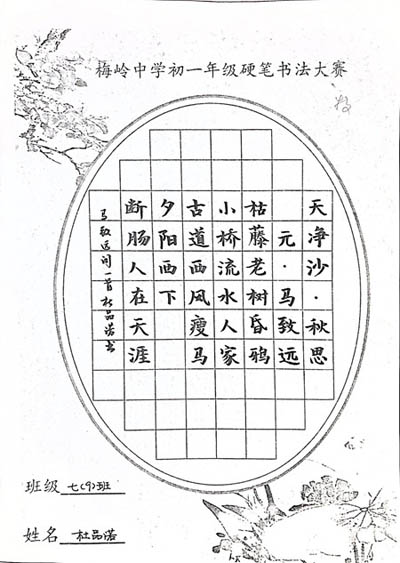 梅岭中学初一年级硬笔书法大赛
天净沙·秋思
元·马致远
枯藤老树昏鸦
小桥流水人家
古道西风瘦马
夕阳西下
断肠人在天涯
马致远词一首杜品诺书
班级 七(9)班
姓名 杜品诺